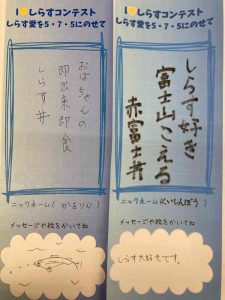 I♥しらすコンテスト
しらす愛を5・7・5にのせて
おばちゃんの
即出来即食
しらす丼
ニックネーム( かるりん )
メッセージや絵をかいてね
I♥しらすコンテスト
しらす愛を5・7・5にのせて
しらす好き
富士山こえる
赤富士丼
ニックネーム(くいしんぼう)
メッセージや絵をかいてね
しらす大好きです。